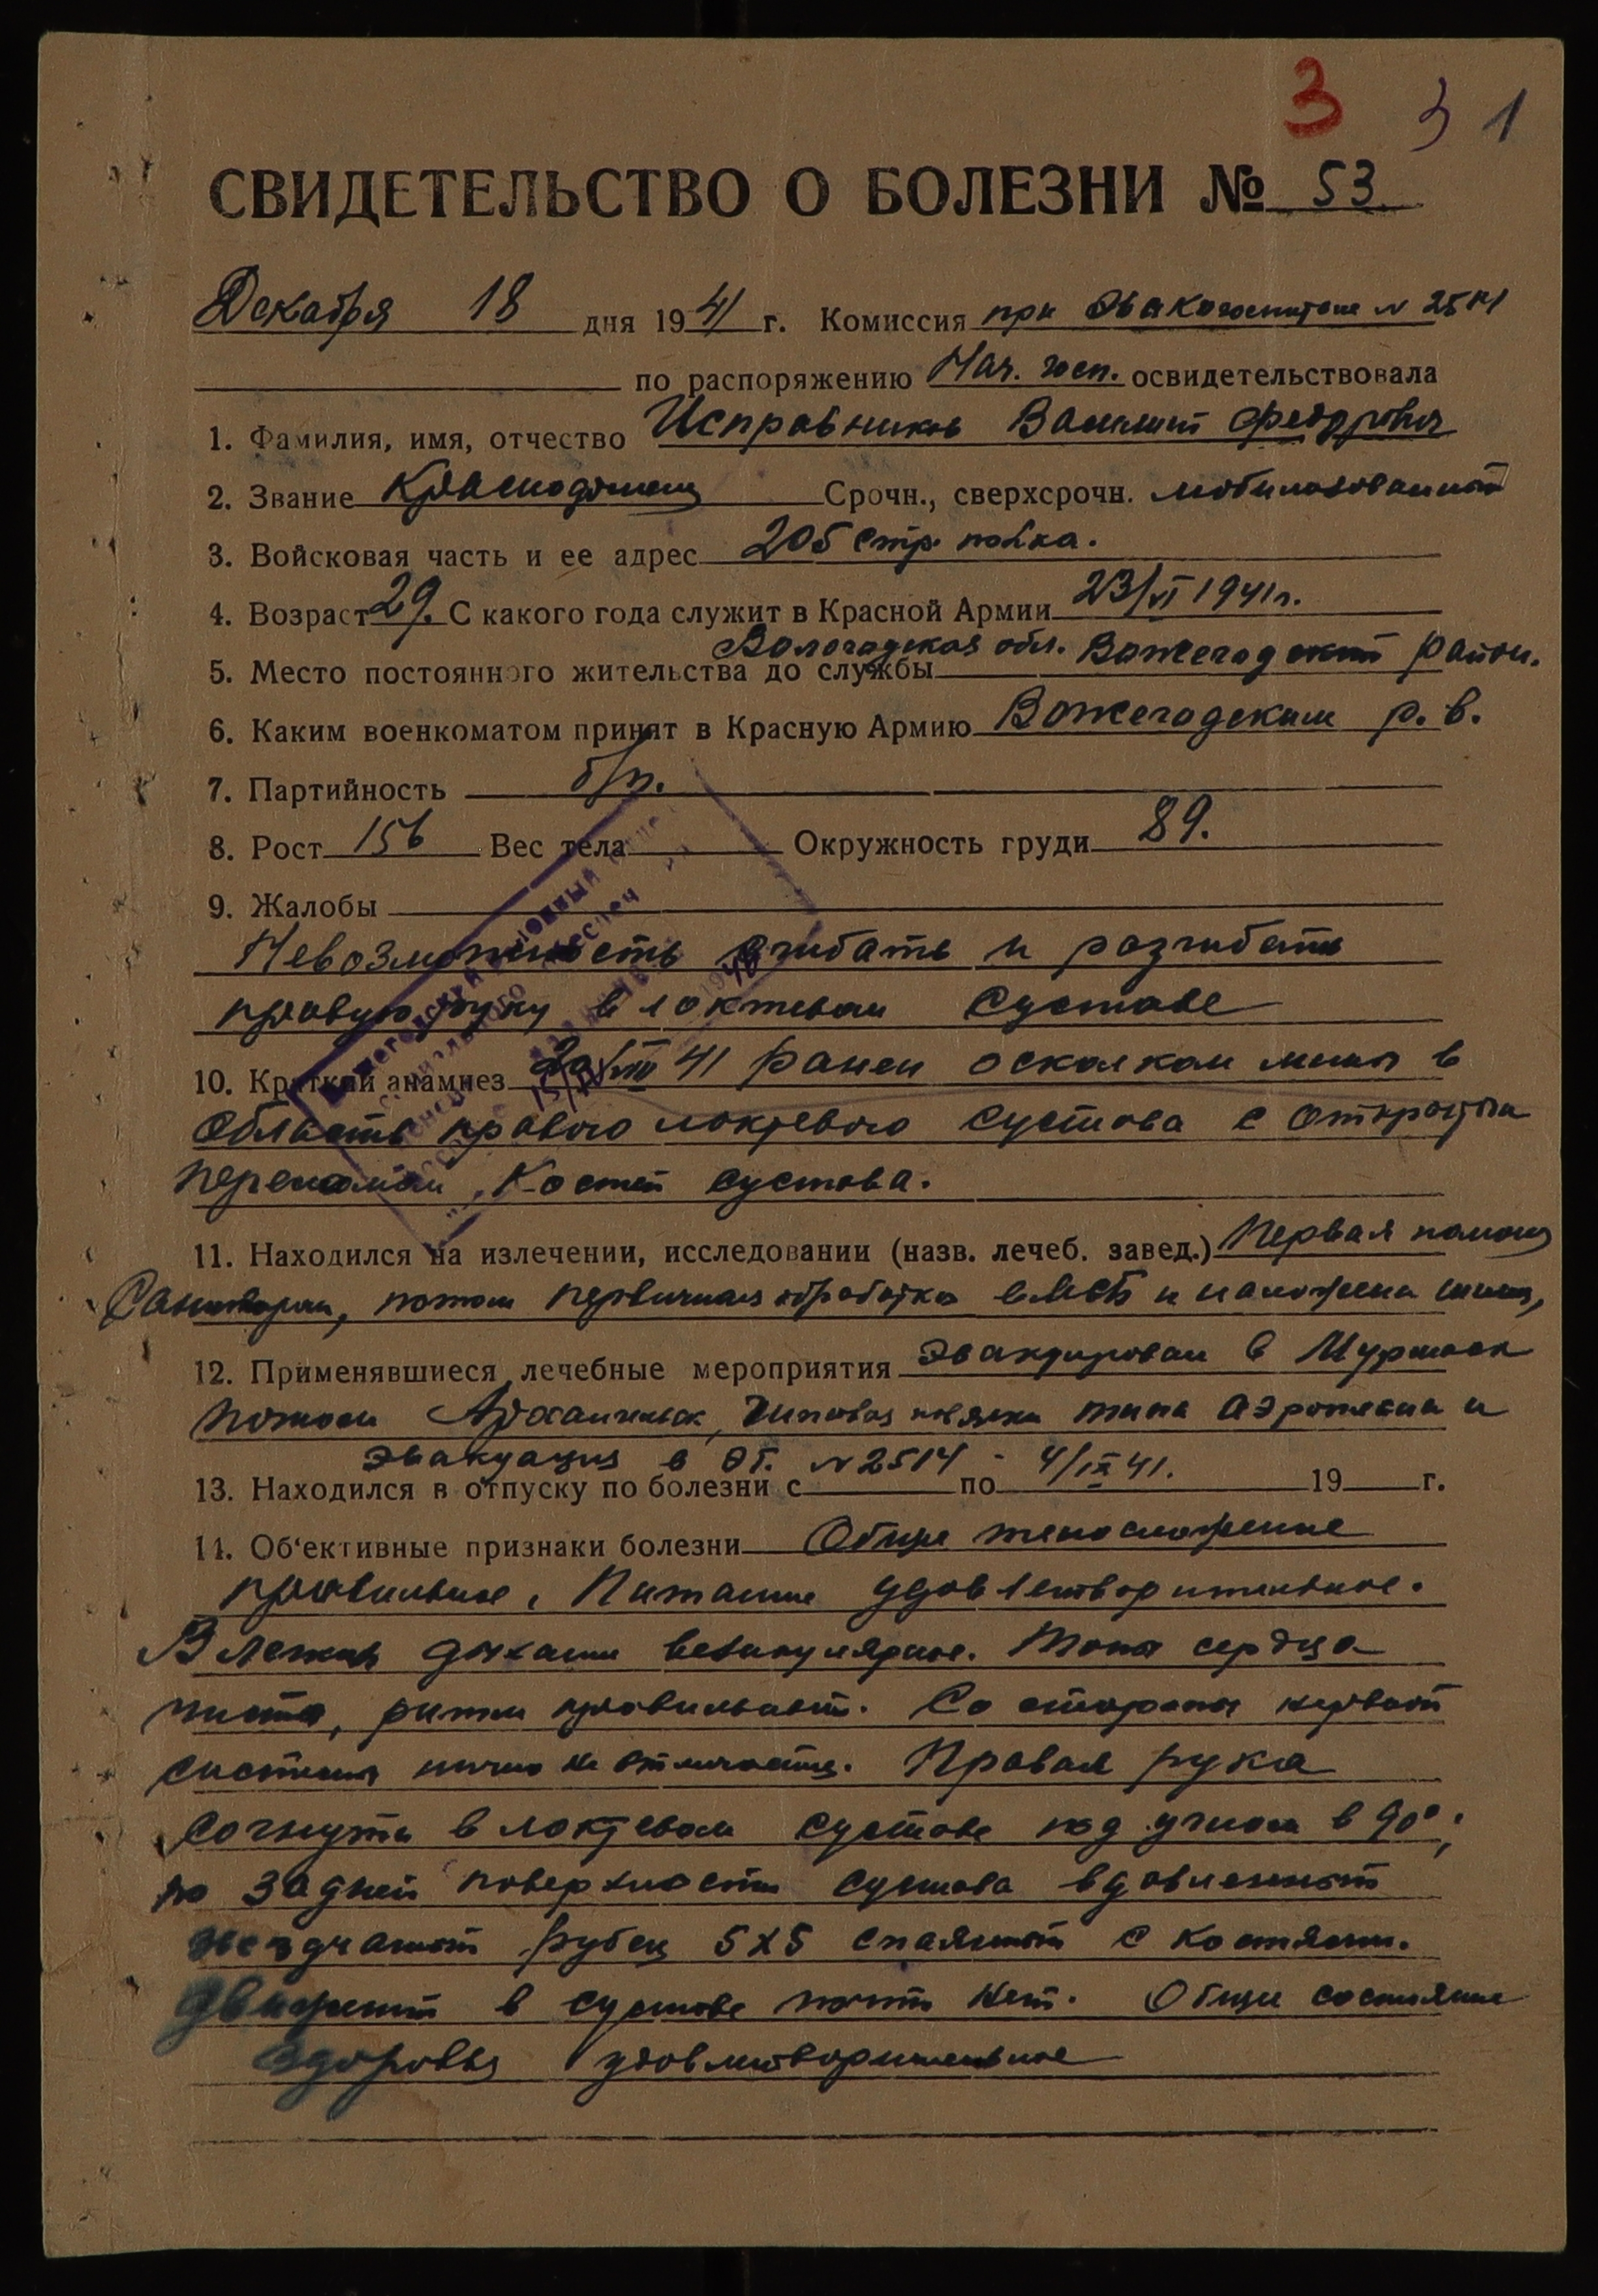 3 3 1
СВИДЕТЕЛЬСТВО О БОЛЕЗНИ № 53
Декабря 18 дня 1941 г. Комиссия при Эвакогоспитале №
по распоряжению Нач. госп. освидетельствовала
1. Фамилия, имя, отчество Исправников Василий Федорович
2. Звание Красноармеец Срочн., сверхсрочн. мобилизованный
3. Войсковая часть и ее адрес 205 стр. полка.
4. Возраст 29. С какого года служит в Красной Армии 23/VI 1941г.
Вологодская обл. Вожегодский район.
5. Место постоянного жительства до службы
6. Каким военкоматом принят в Красную Армию Вожегодским р. в.
7. Партийность б/п.
8. Рост 156 Вес тела Окружность груди 89.
9. Жалобы
Невозможность сгибать и разгибать
правую руку в локтевом суставе
10. Краткий анамнез VIII 41 ранен осколком мины в
область правого локтевого сустава с открытым
переломом костей сустава.
11. Находился на излечении, исследовании (назв. лечеб. завед.) Первая помощь
Санитаром, потом первичная обработка в МСБ и наложена шина,
12. Применявшиеся лечебные мероприятия Эвакуирован в Мурманск
потом Архангельск, гипсовая повязка типа аэроплана и
эвакуация в ЭГ. № 2514 - 4/IX 41.
13. Находился в отпуску по болезни с по 19 г.
14. Об'ективные признаки болезни Общее телосложение
правильное. Питание удовлетворительное.
В легких дыхание везикулярное. Тоны сердца
чисты, ритм правильный. Со стороны нервной
системы ничего не отмечается. Правая рука
согнута в локтевом суставе под углом в 90°;
по задней поверхности сустава вдавленный
звездчатый рубец 5х5 спаянный с костями.
Движений в суставе почти нет. Общее состояние
здоровья удовлетворительное